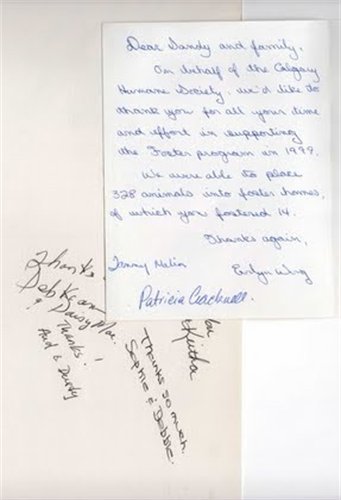 Dear Sandy and family,
On behalf of the Calgary
Humane Society, we'd like to
thank you for all your time
and effort in supporting
the Foster program in 1999.
We were able to place
328 animals into foster homes,
of which you fostered 14.
Thanks again,
Evelyn Wing
Patricia Cracknell.
Thanks
Deb
& Daisy Mae
Thanks!
& Dusty
Keitha
Thanks so much.
Sophie & Debbie.